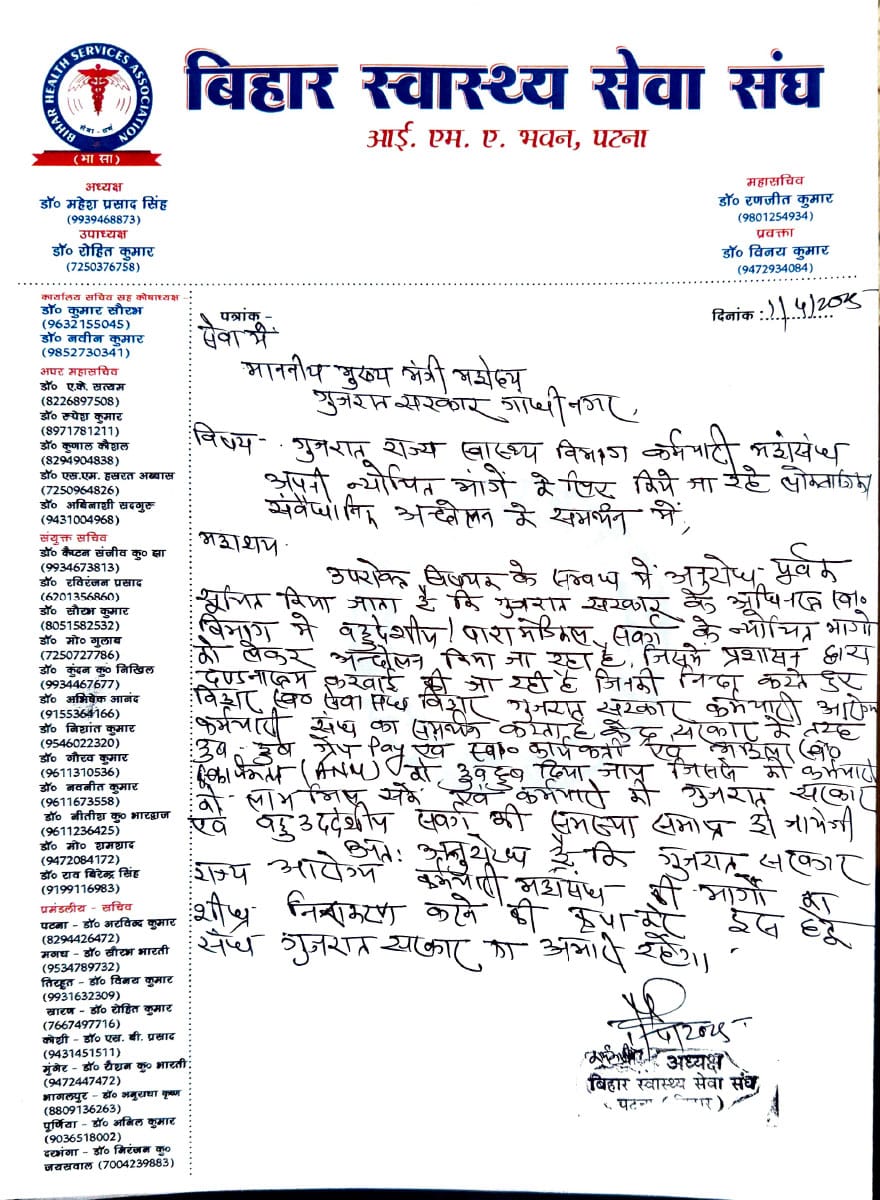 BIHAR HEALTH SERVICES ASSOCIATION
सेवा - धर्म
(भा सा)
बिहार स्वास्थ्य सेवा संघ
आई. एम. ए. भवन, पटना
अध्यक्ष
डॉ० महेश प्रसाद सिंह
(9939468873)
उपाध्यक्ष
डॉ० रोहित कुमार
(7250376758)
महासचिव
डॉ० रणजीत कुमार
(9801254934)
प्रवक्ता
डॉ० विनय कुमार
(9472934084)
कार्यालय सचिव सह कोषाध्यक्ष -
डॉ० कुमार सौरभ
(9632155045)
डॉ० नवीन कुमार
(9852730341)
अपर महासचिव
डॉ० ए.के. सत्यम
(8226897508)
डॉ० रूपेश कुमार
(8971781211)
डॉ० कुणाल कौशल
(8294904838)
डॉ० एस.एम. हसरत अब्बास
(7250964826)
डॉ० अबिनाशी सदगुरु
(9431004968)
संयुक्त सचिव
डॉ० कैप्टन संजीव कु० झा
(9934673813)
डॉ० रविरंजन प्रसाद
(6201356860)
डॉ० सौरभ कुमार
(8051582532)
डॉ० मो० गुलाब
(7250727786)
डॉ० कुंदन कु० निखिल
(9934467677)
डॉ० अभिषेक आनंद
(9155364166)
डॉ० निशांत कुमार
(9546022320)
डॉ० गौरव कुमार
(9611310536)
डॉ० नवनीत कुमार
(9611673558)
डॉ० नीतीश कु० भारद्वाज
(9611236425)
डॉ० मो० शमशाद
(9472084172)
डॉ० राव बिरेन्द्र सिंह
(9199116983)
प्रमंडलीय - सचिव
पटना - डॉ० अरविन्द कुमार
(8294426472)
मगध - डॉ० सौरभ भारती
(9534789732)
तिरहुत - डॉ० विनय कुमार
(9931632309)
सारण - डॉ० रोहित कुमार
(7667497716)
कोशी - डॉ० एस. बी. प्रसाद
(9431451511)
मुंगेर - डॉ० रौशन कु० भारती
(9472447472)
भागलपुर - डॉ० अनुराधा कृष्ण
(8809136263)
पूर्णिया - डॉ० अनिल कुमार
(9036518002)
दरभंगा - डॉ० निरंजन कु०
जयसवाल (7004239883)
पत्रांक -
दिनांक : 11/4/2025
सेवा में
माननीय मुख्य मंत्री महोदय
गुजरात सरकार गांधी नगर,
विषय - गुजरात राज्य स्वास्थ्य विभाग कर्मचारी महासंघ
अपनी न्योचित मांगें के लिए किये जा रहे लोकतांत्रिक
संवैधानिक अन्दोलन के समर्थन में,
महाशय
उपरोक्त विषयक के सम्बन्ध में अनुरोध पूर्वक
सूचित किया जाता है कि गुजरात सरकार के अधिनस्त स्वा०
विभाग में बहुदेशीय / पारा मेडिकल संवर्ग के न्योचित मांगो
को लेकर अन्दोलन किया जा रहा है, जिसके प्रशासन द्वारा
दण्डनात्मक करवाई की जा रही है जिनकी निन्दा करते हुए
बिहार स्वा० सेवा संघ बिहार गुजरात सरकार कर्मचारी आरोग्य
कर्मचारी संघ का समर्थन करता है केंद्र सरकार के तरह
ग्रेप Pay एवं स्वा० कार्यकर्ता एवं महिला स्वा०
(ANM) को दिया जाय जिससे की कर्मचारी
को लाभ मिल सके एवं कर्मचारी की गुजरात सरकार
एवं बहुउद्देशीय संवर्ग की समस्या समाप्त हो जायेगी
अतः अनुरोध है कि गुजरात सरकार
राज्य आरोग्य कर्मचारी महासंघ की मांगों का
शीघ्र निराकरण करने की कृपा करे इस हेतू
संघ गुजरात सरकार का अभारी रहेगा।
अध्यक्ष
बिहार स्वास्थ्य सेवा संघ
पटना (बिहार)